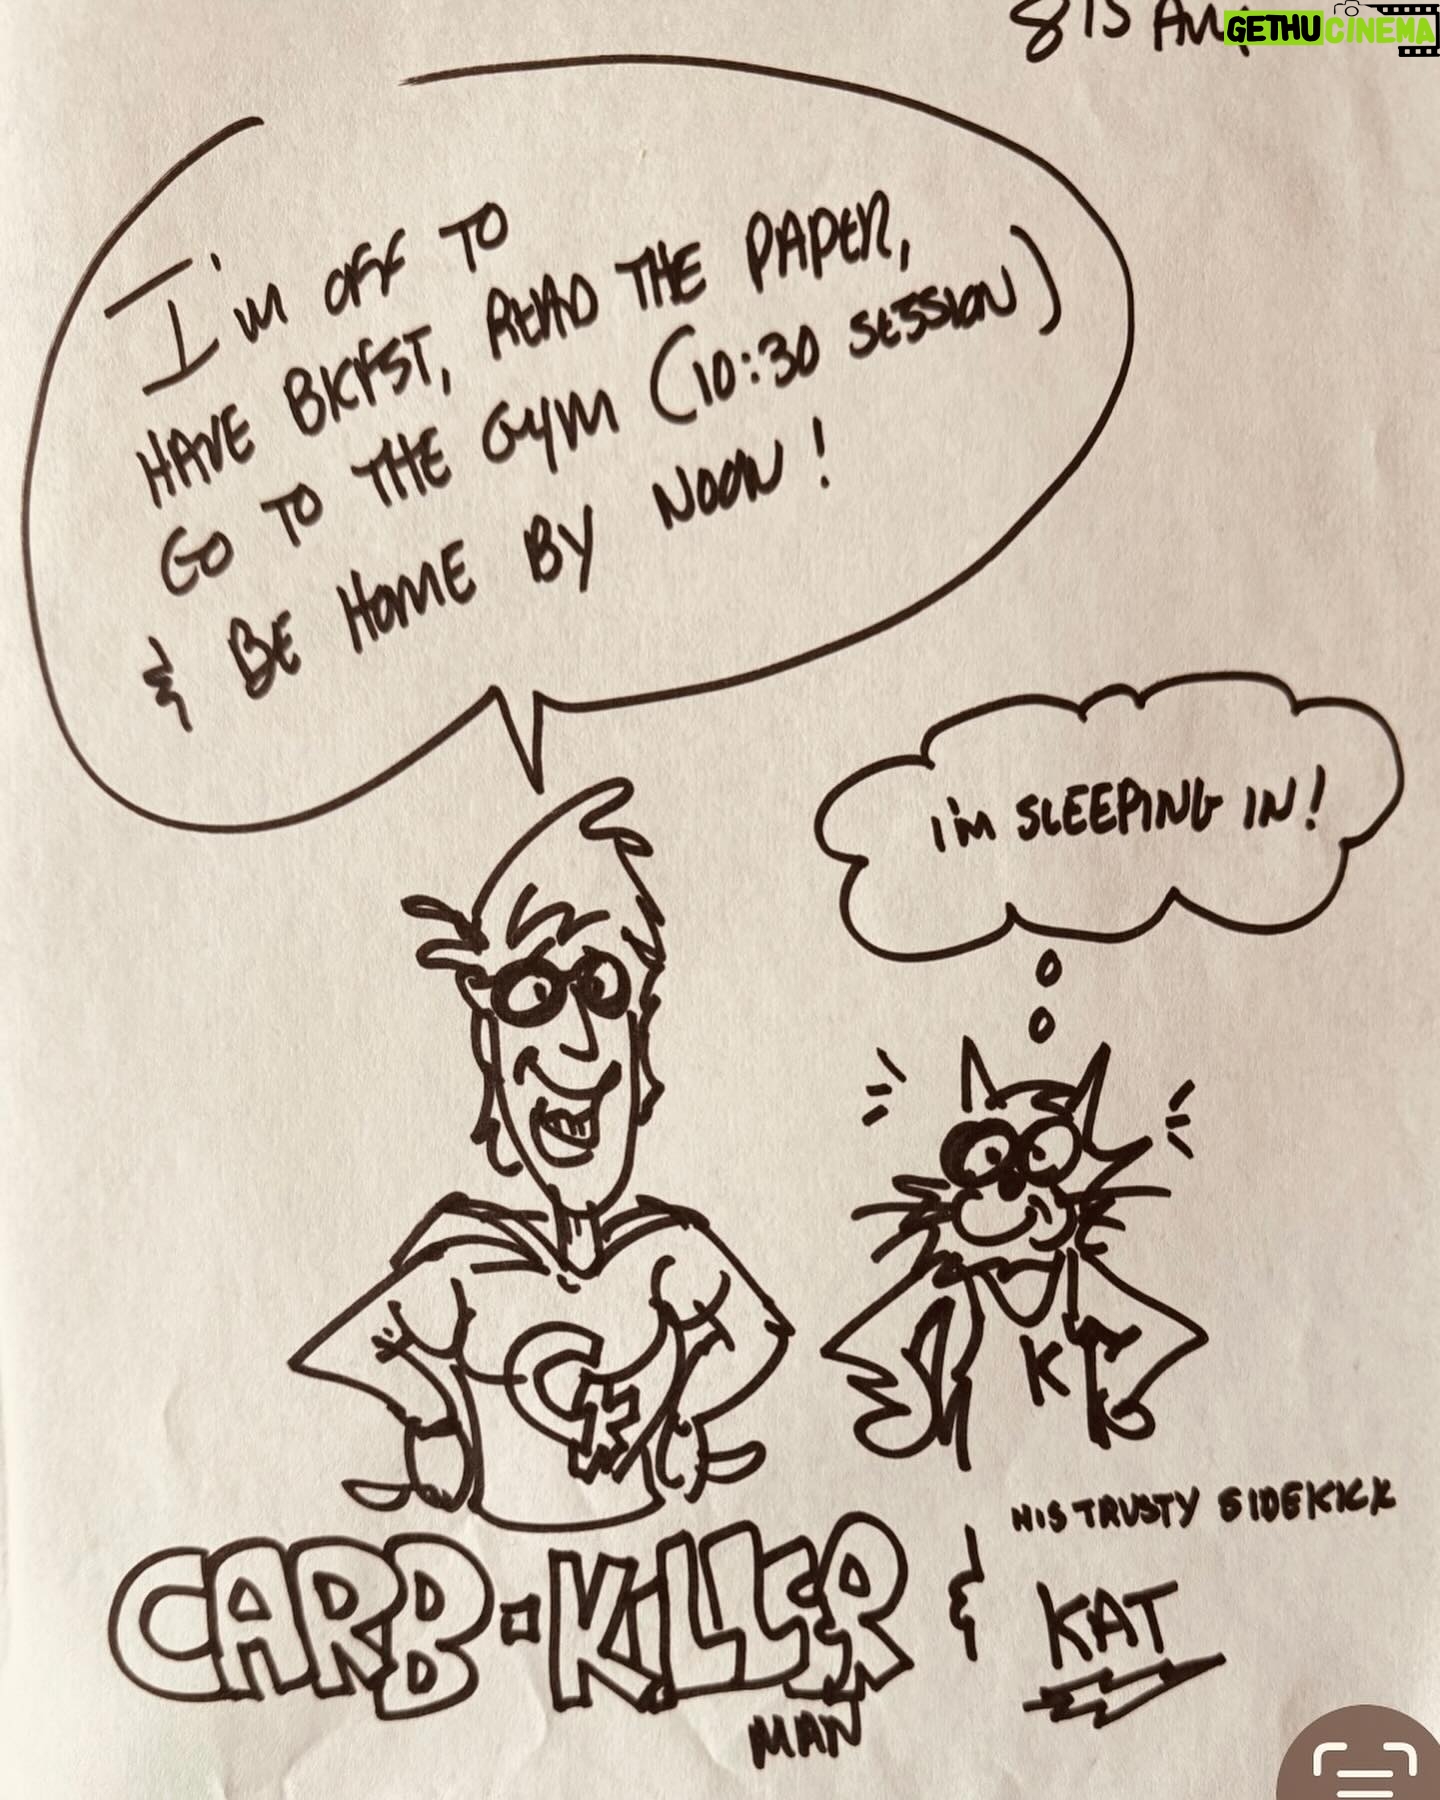 8 15 AM
GETHUCINEMA
I'm OFF TO
HAVE BKFST, READ THE PAPER,
GO TO THE GYM (10:30 SESSION)
& BE HOME BY NOON!
I'm SLEEPING IN!
C
K
HIS TRUSTY SIDEKICK
CARB-KiLLER & KAT
MAN